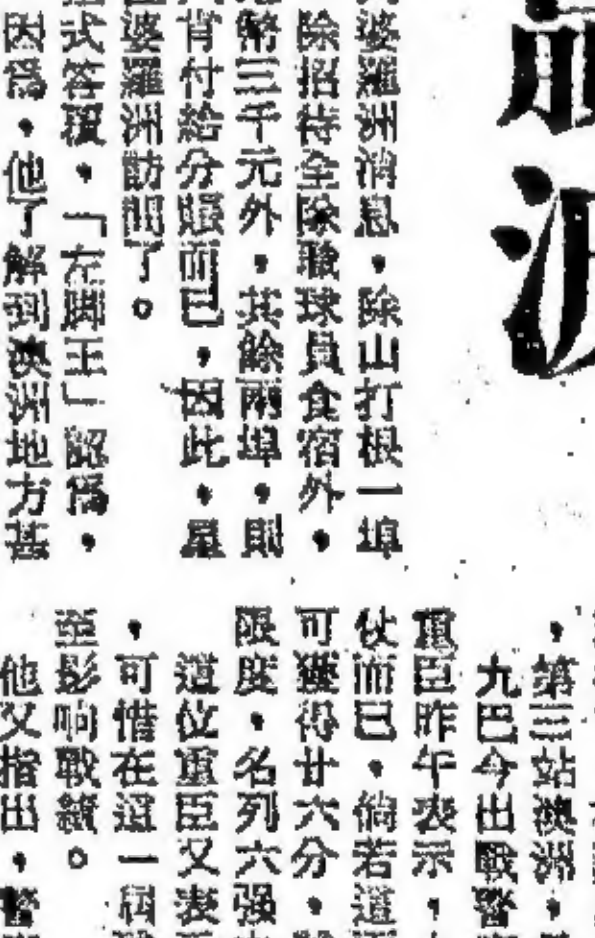 波
婆羅洲消息，除山打根一埠
除招待全隊職球員食宿外，
幣三千元外，其餘兩埠，則
肯付給分賬而已，因此，星
婆羅洲訪問了。
式答覆，「左脚王」認爲，
因爲，他了解到澳洲地方甚
，第三站澳洲，
九巴今出戰警
重臣昨午表示，
伙而已，倘若這
可獲得廿六分，
限度，名列六强
這位重臣又表
，可惜在這一屆
至影响戰績。
他又指出，警